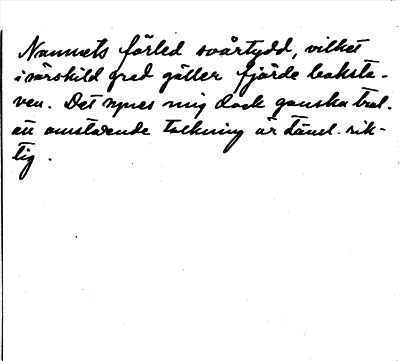 Namnets förled svårtydd, vilket
i särskild grad gäller fjärde boksta-
ven. Det synes mig dock ganska trol.
att omstående tolkning är tänel. rik-
tig.